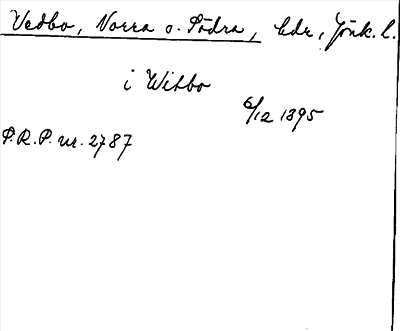 Vedbo, Norra o. Södra, hdr, Jönk. l.
i Witbo
6/12 1395
P.R.P. nr. 2787